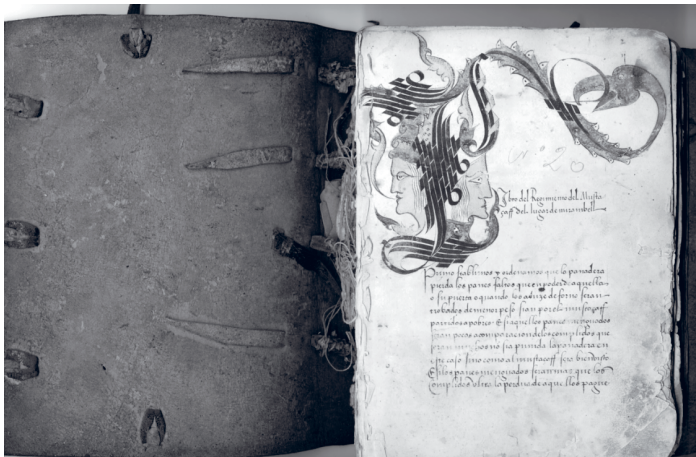 nº 20
Libro del Regimiento del Musta
çaff del lugar de mirambell
Primo stablimos z ordenamos que la panadera
pierda los panes faltos que en poder de aquella
o su puerta o quando los aduze de forno seran
trobados de menor peso sian por el mustaçaf
partidos a pobres E si aquellos panes menguados
sian pocos a comparacion de los complidos que
seran muchos no sia perdida la panadera en
este caso sino como al mustaçaff sera bien visto
E si los panes menguados seran mas que los
complidos ultra la perdua de aquellos pague